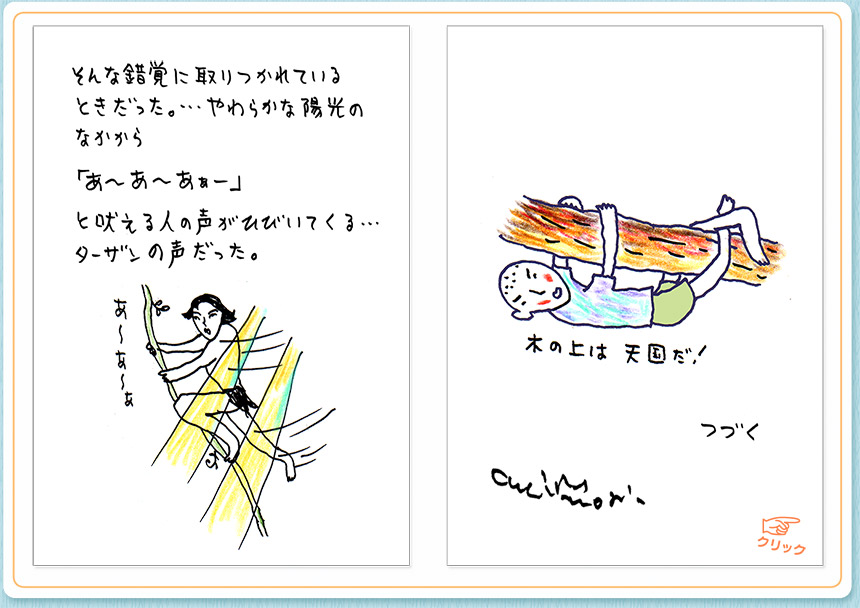 そんな錯覚に取りつかれている
ときだった。…やわらかな陽光の
なかから
「あ〜あ〜あぁー」
と吠える人の声がひびいてくる…
ターザンの声だった。
あ〜あ〜あ
木の上は 天国だ!
つづく
クリック